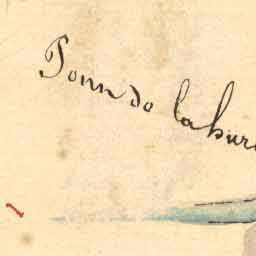 Tonn do labur
1